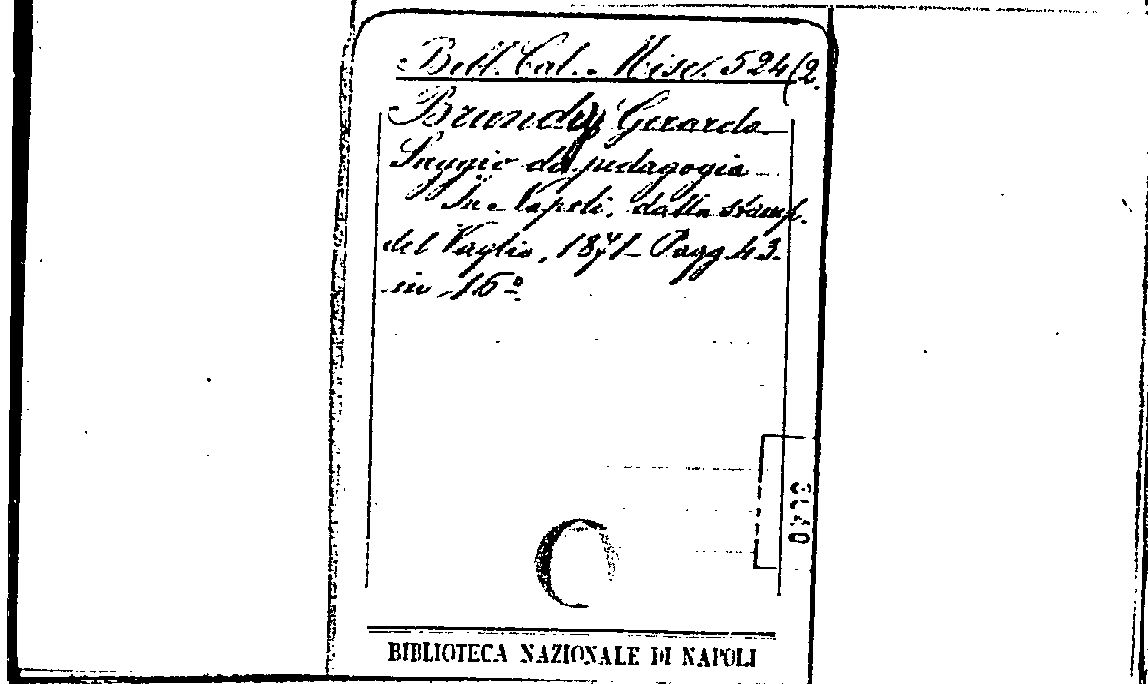 Bibl. Cat. Misc. 524(2.
Brundy Gerardo
Saggio di pedagogia
In Napoli, dalla stamp.
del Vaglio, 1871 - Pagg. 43.
in 16º
BIBLIOTECA NAZIONALE DI NAPOLI